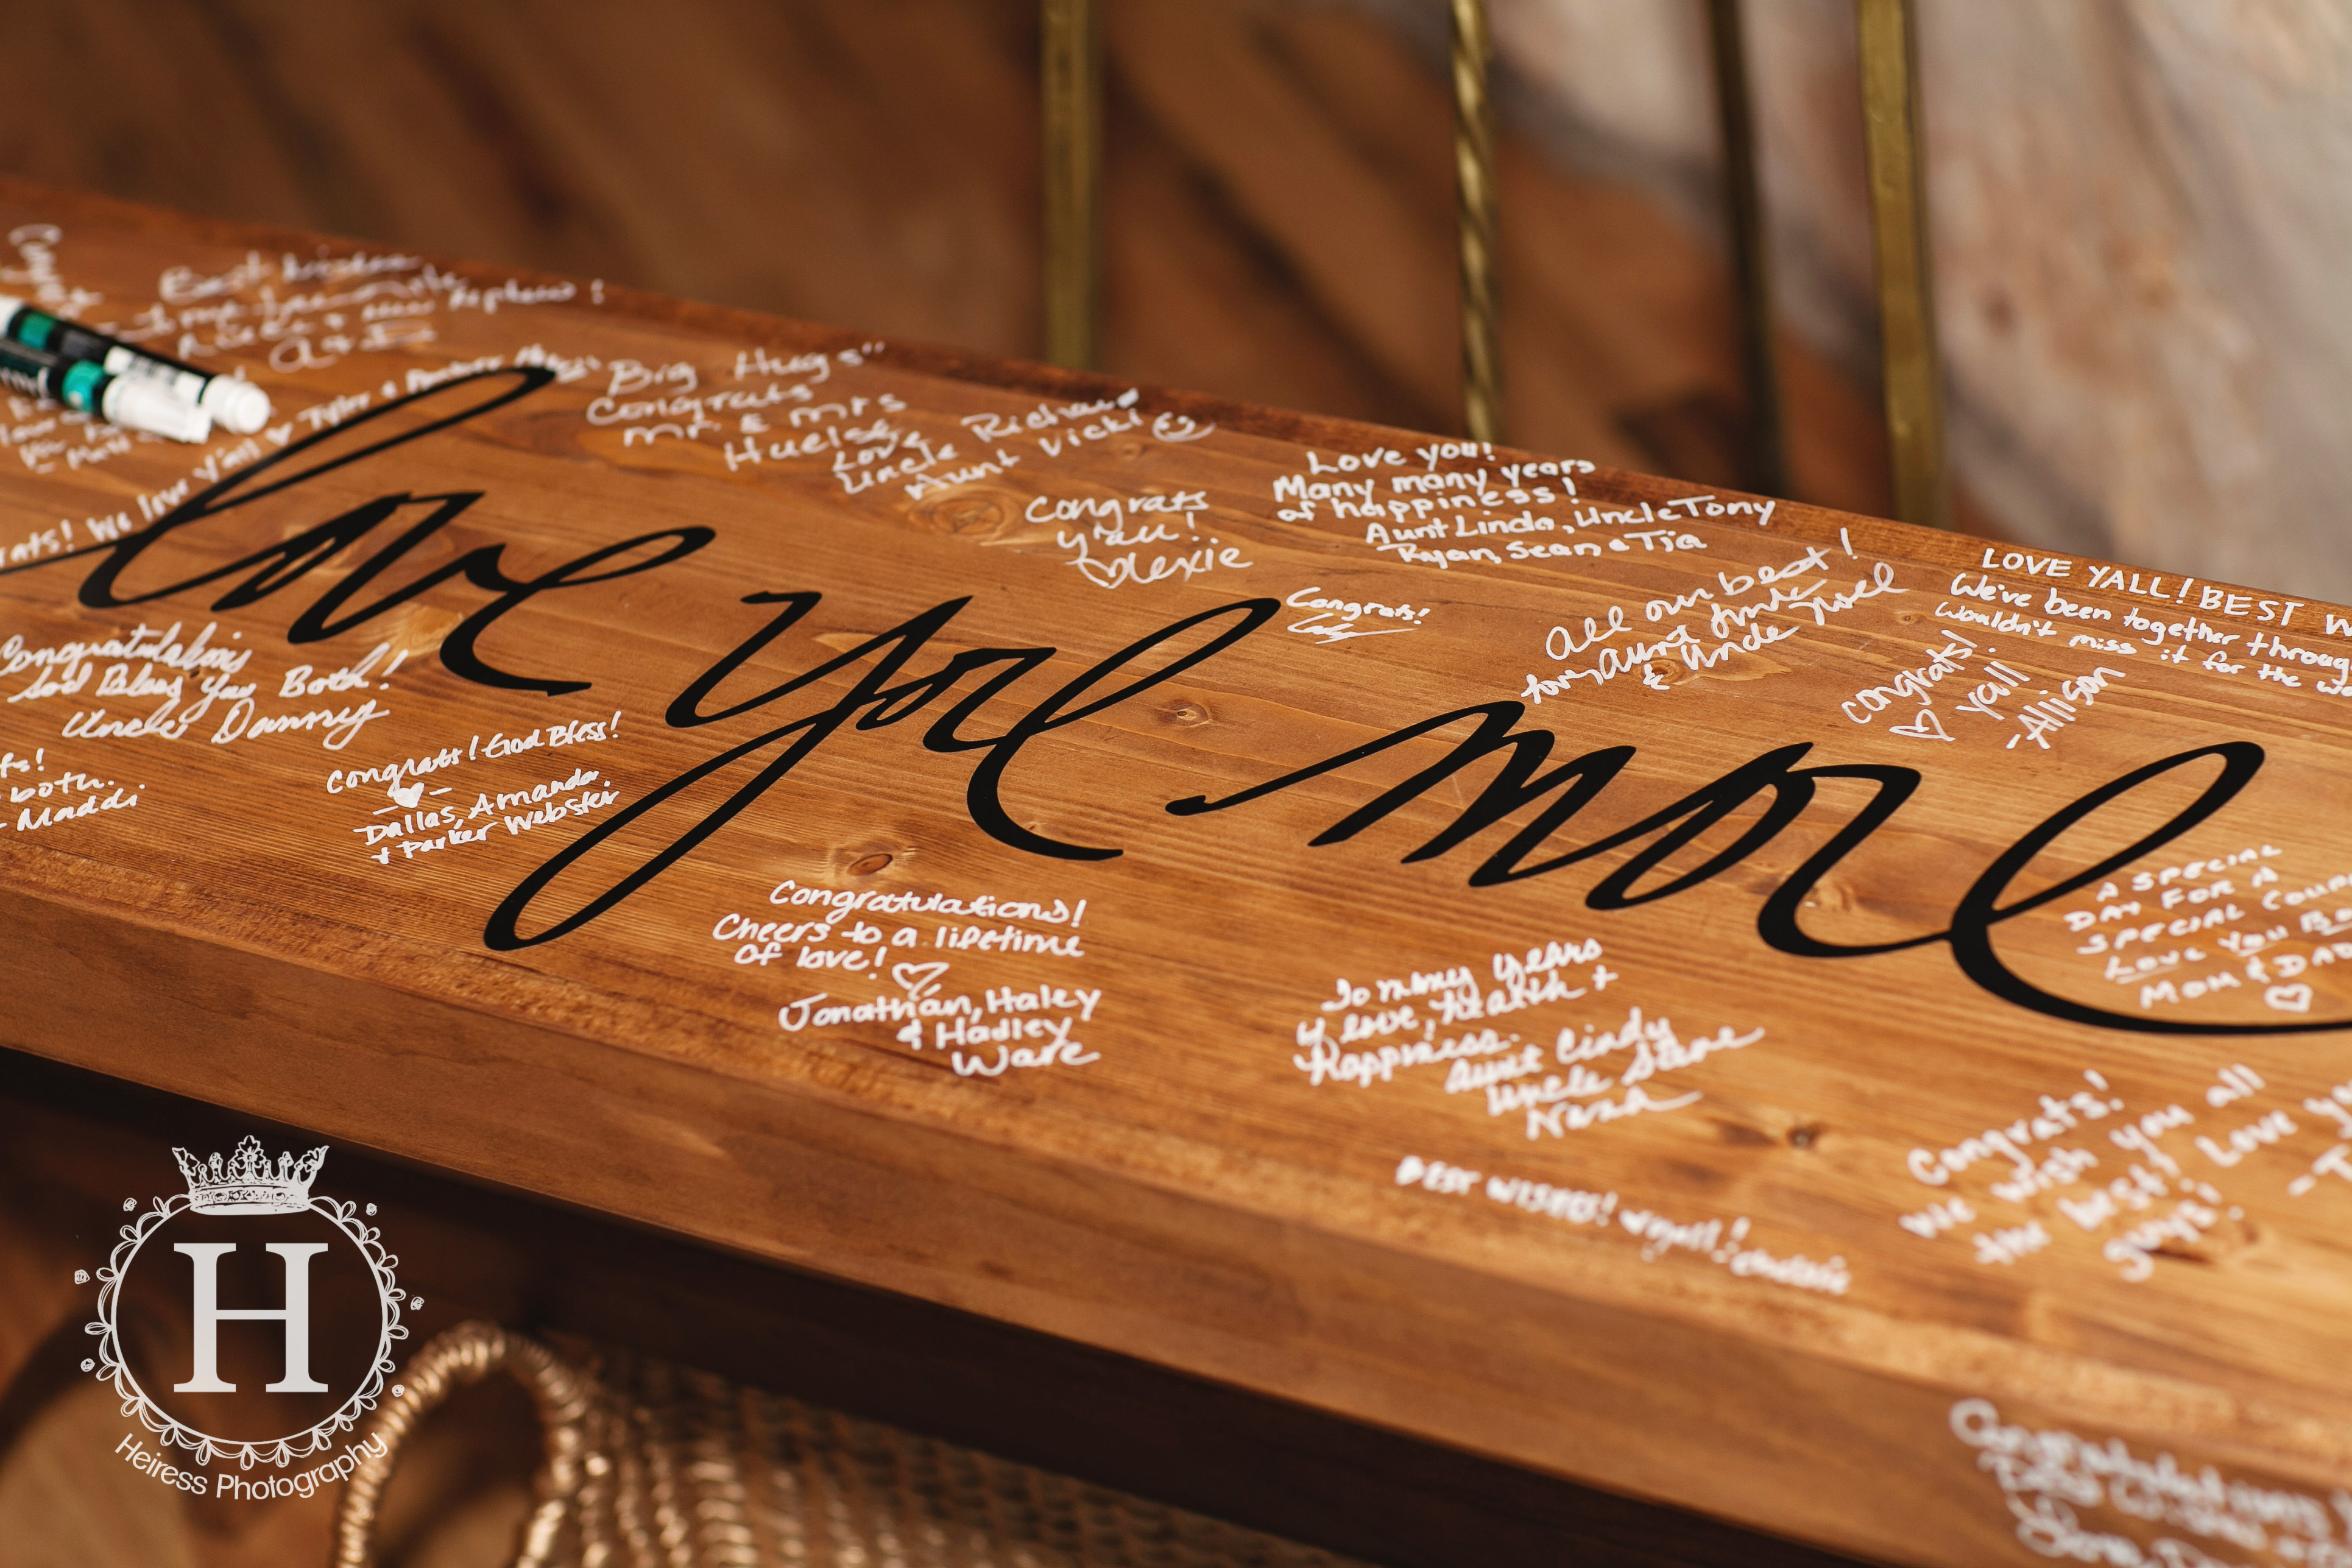 love you more
Best wishes
nephew!
Congrats! We love y'all ♡ Tyler &
Big Hugs"
Congrats
Mr & Mrs
Huelse
Love
Uncle Richard
Aunt Vicki
Congrats
y'all!
♡ Lexie
Love you!
Many many years
of happiness!
Aunt Linda, Uncle Tony
Ryan, Sean & Tia
Congrats!
All our best!
Aunt
& Uncle Noel
LOVE YALL! BEST W
We've been together throug
Wouldn't miss it for the w
Congrats!
♡ yall
-Allison
Congratulations
God Bless You Both!
Uncle Danny
both.
- Maddi
Congrats! God Bless!
- ♡ -
Dallas, Amanda
+ Parker Webster
Congratulations!
Cheers to a lifetime
of love! ♡
Jonathan, Haley
& Hadley
Ware
To many years
of love, health +
Happiness.
Aunt Cindy
Uncle Steve
A SPECIAL
DAY FOR A
SPECIAL COUP
LOVE YOU BO
MOM & DAD
♡
Congrats!
We wish you all
the best! Love y
guys!
BEST WISHES! ♥ yall!
Congratulations
H
Heiress Photography